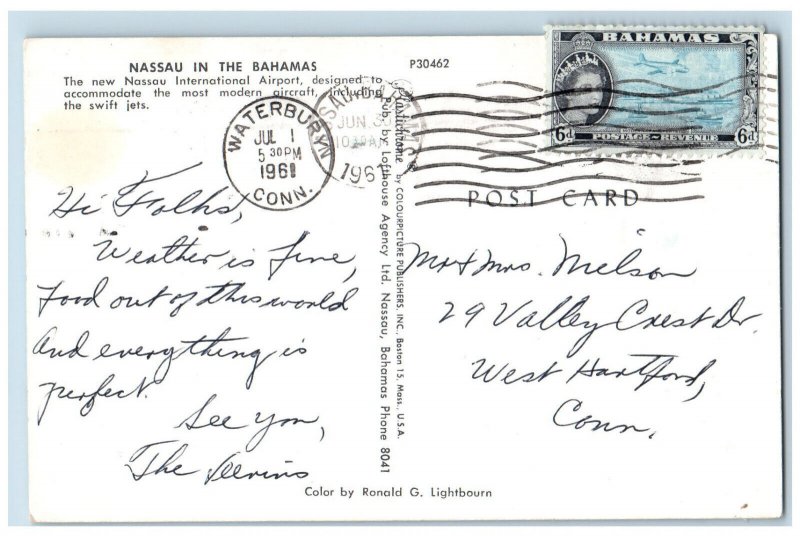 NASSAU IN THE BAHAMAS
The new Nassau International Airport, designed to
accommodate the most modern aircraft, including
the swift jets.
P30462
WATERBURY
JUL 1
5 30PM
1961
CONN.
JUN
1961
BAHAMAS
6d POSTAGE REVENUE 6d
POST CARD
Hi Folks,
Weather is fine,
Food out of this world
And everything is
perfect.
See you,
The
Plastichrome by COLOURPICTURE PUBLISHERS, INC., Boston 15, Mass., U.S.A.
Pub. by Lofthouse Agency Ltd. Nassau, Bahamas Phone 8041
Mr & Mrs. Nielson
29 Valley Crest Dr.
West Hartford,
Conn.
Color by Ronald G. Lightbourn